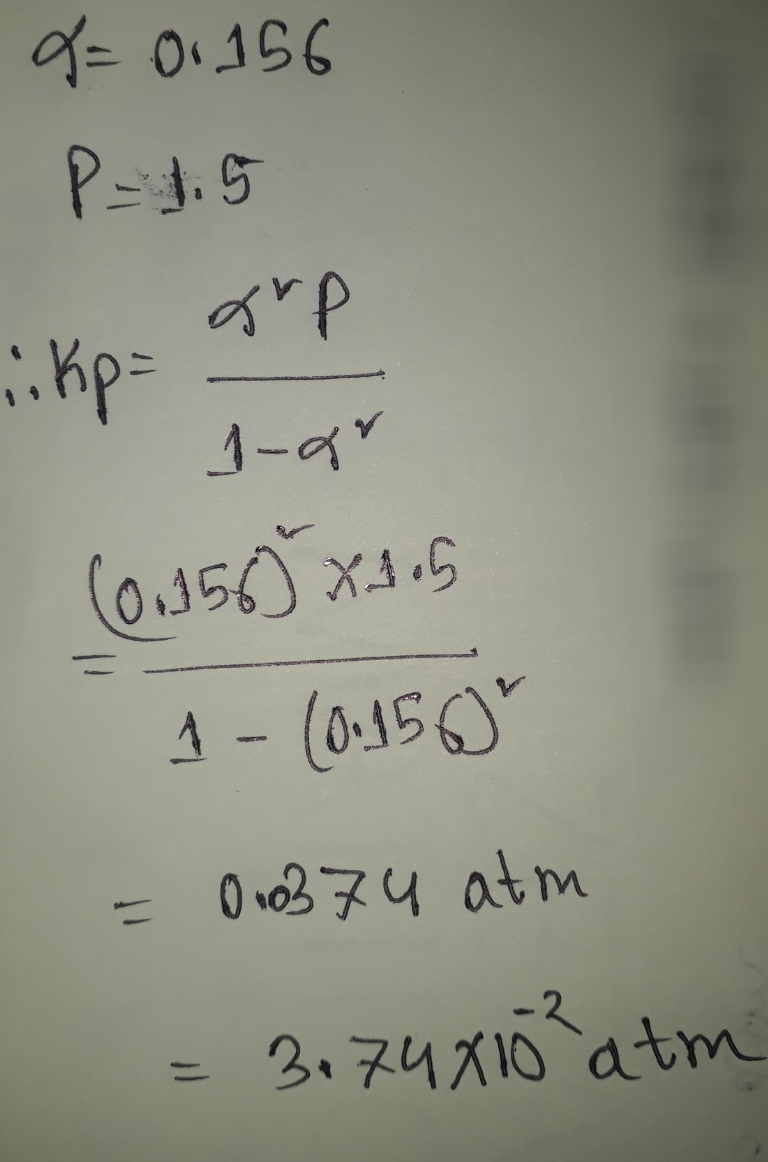 α = 0.156
P = 1.5
∴ Kp = α²P / 1-α²
= (0.156)² × 1.5 / 1 - (0.156)²
= 0.0374 atm
= 3.74×10⁻² atm